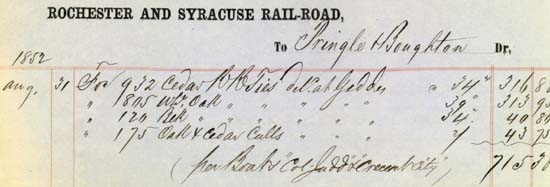 ROCHESTER AND SYRACUSE RAIL-ROAD,
To Pringle & Boughton Dr,
1852
Aug. 31 For 932 Cedar RR Ties del. at Geddes " 34" 316 8
" 1805 Wt. Oak " " " " " 39" 313 9
" 120 " " " " " 34" 40 8
" 175 Oak & Cedar Culls " " " 2/ 43 75
(per Boats "Col Judd" & "Crescent City") 715 3